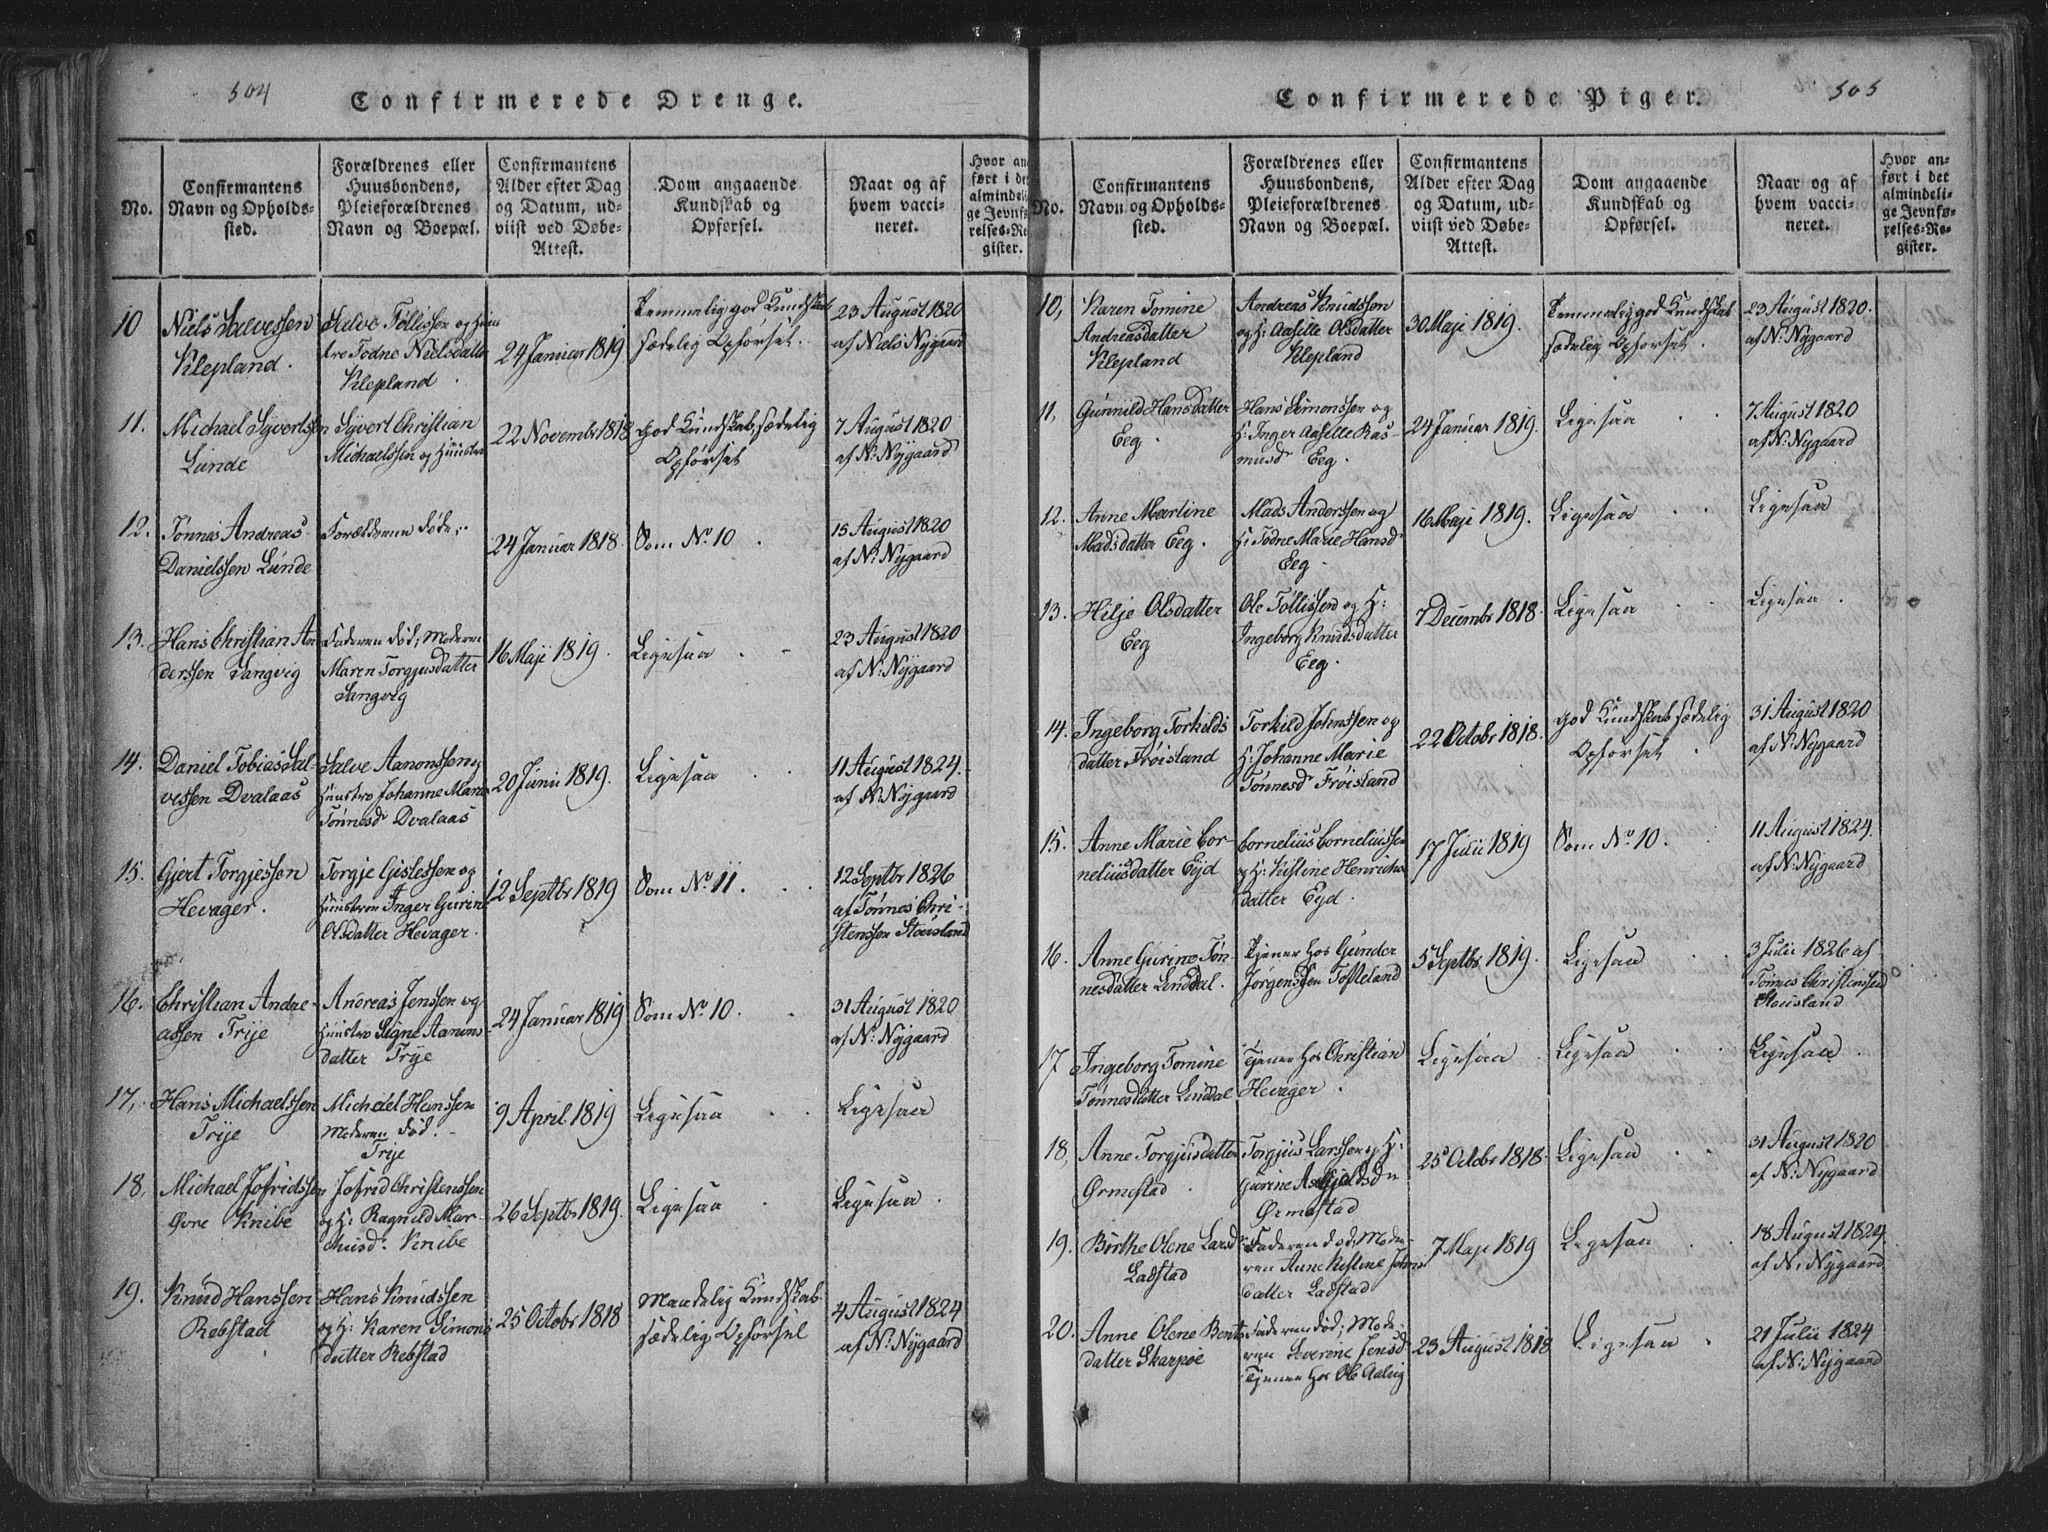 504
Confirmerede Drenge.
No.
Confirmantens
Navn og Opholds-
sted.
Forældrenes eller
Huusbondens,
Pleieforældrenes
Navn og Boepæl.
Confirmantens
Alder efter Dag
og Datum, ud-
viist ved Døbe-
Attest.
Dom angaaende
Kundskab og
Opførsel.
Naar og af
hvem vacci-
neret.
Hvor an
ført i de
almindeli
ge Jevnfø
relses-Re
gister.
10
Niels Salvessen
Klepland.
Salve Tollissen og
Todne Nielsdatter
Klepland.
24 Januar 1819
Temmelig god Kundskab
sædelig Opførsel.
23 August 1820
af Niels Nygaard
11.
Michael Syvertsen
Lunde
Syvert Christian
Michaelssen og Huustro
22 Novembr 1818
god Kundskab sædelig
Opførsel
7 August 1820
af N: Nygaard
12.
Tønnes Andreas
Danielssen Lunde
Forældrene døde.
24 Januar 1818.
Som No. 10.
15 August 1820
af N: Nygaard
13.
Hans Christian An
derssen Langvig
Faderen død; Moderen
Maren Torgjusdatter
Langvig
16 Maji 1819.
Ligesaa
23 August 1820
af N: Nygaard
14.
Daniel Tobias Sal-
vessen Dvalaas
Salve Aanonssen og
Huustro Johanne Marie
Tønnesd Dvalaas
20 Juni 1819.
Ligesaa
11 August 1824.
af N: Nygaard
15.
Gjert Torgjessen
Hevager.
Torgje Gislessen og
Huustroe Inger Gurine
Olsdatter Hevager.
12 Septbr 1819
Som No. 11.
12 Septbr 1826
af Tønnes Chri-
stenssen Stousland
16.
Christian Andre
assen Trye
Andreas Jenssen og
Huustro Signe Aanons
datter Trye
24 Januar 1819
Som No. 10.
31 August 1820
af N: Nygaard
17.
Hans Michaelssen
Trye
Michael Hanssen
Moderen død.
Trye
9 April 1819
Ligesaa
Ligesaa
18.
Michael Jofridssen
Øvre Knibe
Jofrid Christenssen
og H: Ragnild Mar-
chusd: Knibe
26 Septbr 1819.
Ligesaa
Ligesaa.
19.
Knud Hanssen
Rebstad
Hans Knudssen
og H: Karen Simons
datter Rebstad
25 Octobr 1818
Maadelig Kundskab
sædelig Opførsel
4 August 1824
af N: Nygaard
505
Confirmerede Piger.
No.
Confirmantens
Navn og Opholds-
sted.
Forældrenes eller
Huusbondens,
Pleieforældrenes
Navn og Boepæl.
Confirmantens
Alder efter Dag
og Datum, ud-
viist ved Døbe-
Attest.
Dom angaaende
Kundskab og
Opførsel.
Naar og af
hvem vacci-
neret.
Hvor an-
ført i det
almindeli-
ge Jevnfø-
relses-Re-
gister.
10,
Karen Tomine
Andreasdatter
Klepland
Andreas Knudssen
og H: Aasille Olsdatter
Klepland
30 Maji 1819.
Temmelig god Kundskab
sædelig Opførsel.
23 August 1820.
af N: Nygaard
11,
Gunnild Hansdatter
Eeg.
Hans Simonssen og
H: Inger Aasille Ras-
musd Eeg.
24 Januar 1819.
Ligesaa
7 August 1820
af N: Nygaard
12.
Anne Martine
Madsdatter Eeg.
Mads Anderssen og
H: Todne Marie Hansd
Eeg.
16 Maji 1819.
Ligesaa
Ligesaa
13.
Hilje Olsdatter
Eeg
Ole Tollissen og H:
Ingeborg Knudsdatter
Eeg.
7 Decembr 1818.
Ligesaa
Ligesaa.
14.
Ingeborg Torkilds
datter Frøisland
Torkild Johnssen og
H: Johanne Marie
Tønnesd Frøisland
22 Octobr 1818.
god Kundskab sædelig
Opførsel.
31 August 1820
af N: Nygaard
15.
Anne Marie Cor
neliusdatter Eyd
Cornelius Corneliussen
og H: Kistine Henrichs
datter Eyd.
17 Julii 1819
Som No. 10.
11 August 1824.
af N: Nygaard
16.
Anne Gurine Tøn-
nesdatter Linddal.
Tjener hos Gunder
Jørgenssen Tofteland
5 Septbr 1819.
Ligesaa
3 Julii 1826 af
Tønnes Christenssen
Stousland
17
Ingeborg Tomine
Tønnesdatter Linddal
Tjener hos Christian
Hevager.
Ligesaa
Ligesaa
Ligesaa.
18,
Anne Torgjusdatter
Ørmestad.
Torgjus Larssen og H:
Gurine
Ørmestad
25 Octobr 1818.
Ligesaa
31 August 1820
af N: Nygaard
19.
Birthe Olene Larsd
Ladstad
Faderen død; Mode-
ren Anne Kistine Johns
datter Ladstad
7 Maji 1819
Ligesaa
18 August 1824
af N: Nygaard
20.
Anne Olene Bents
datter Skarpøe
Faderen død; Mode-
ren Severine Jensd
Tjener hos Ole Aalvig
23 August 1818
Ligesaa
21 Julii 1824
af N: Nygaard